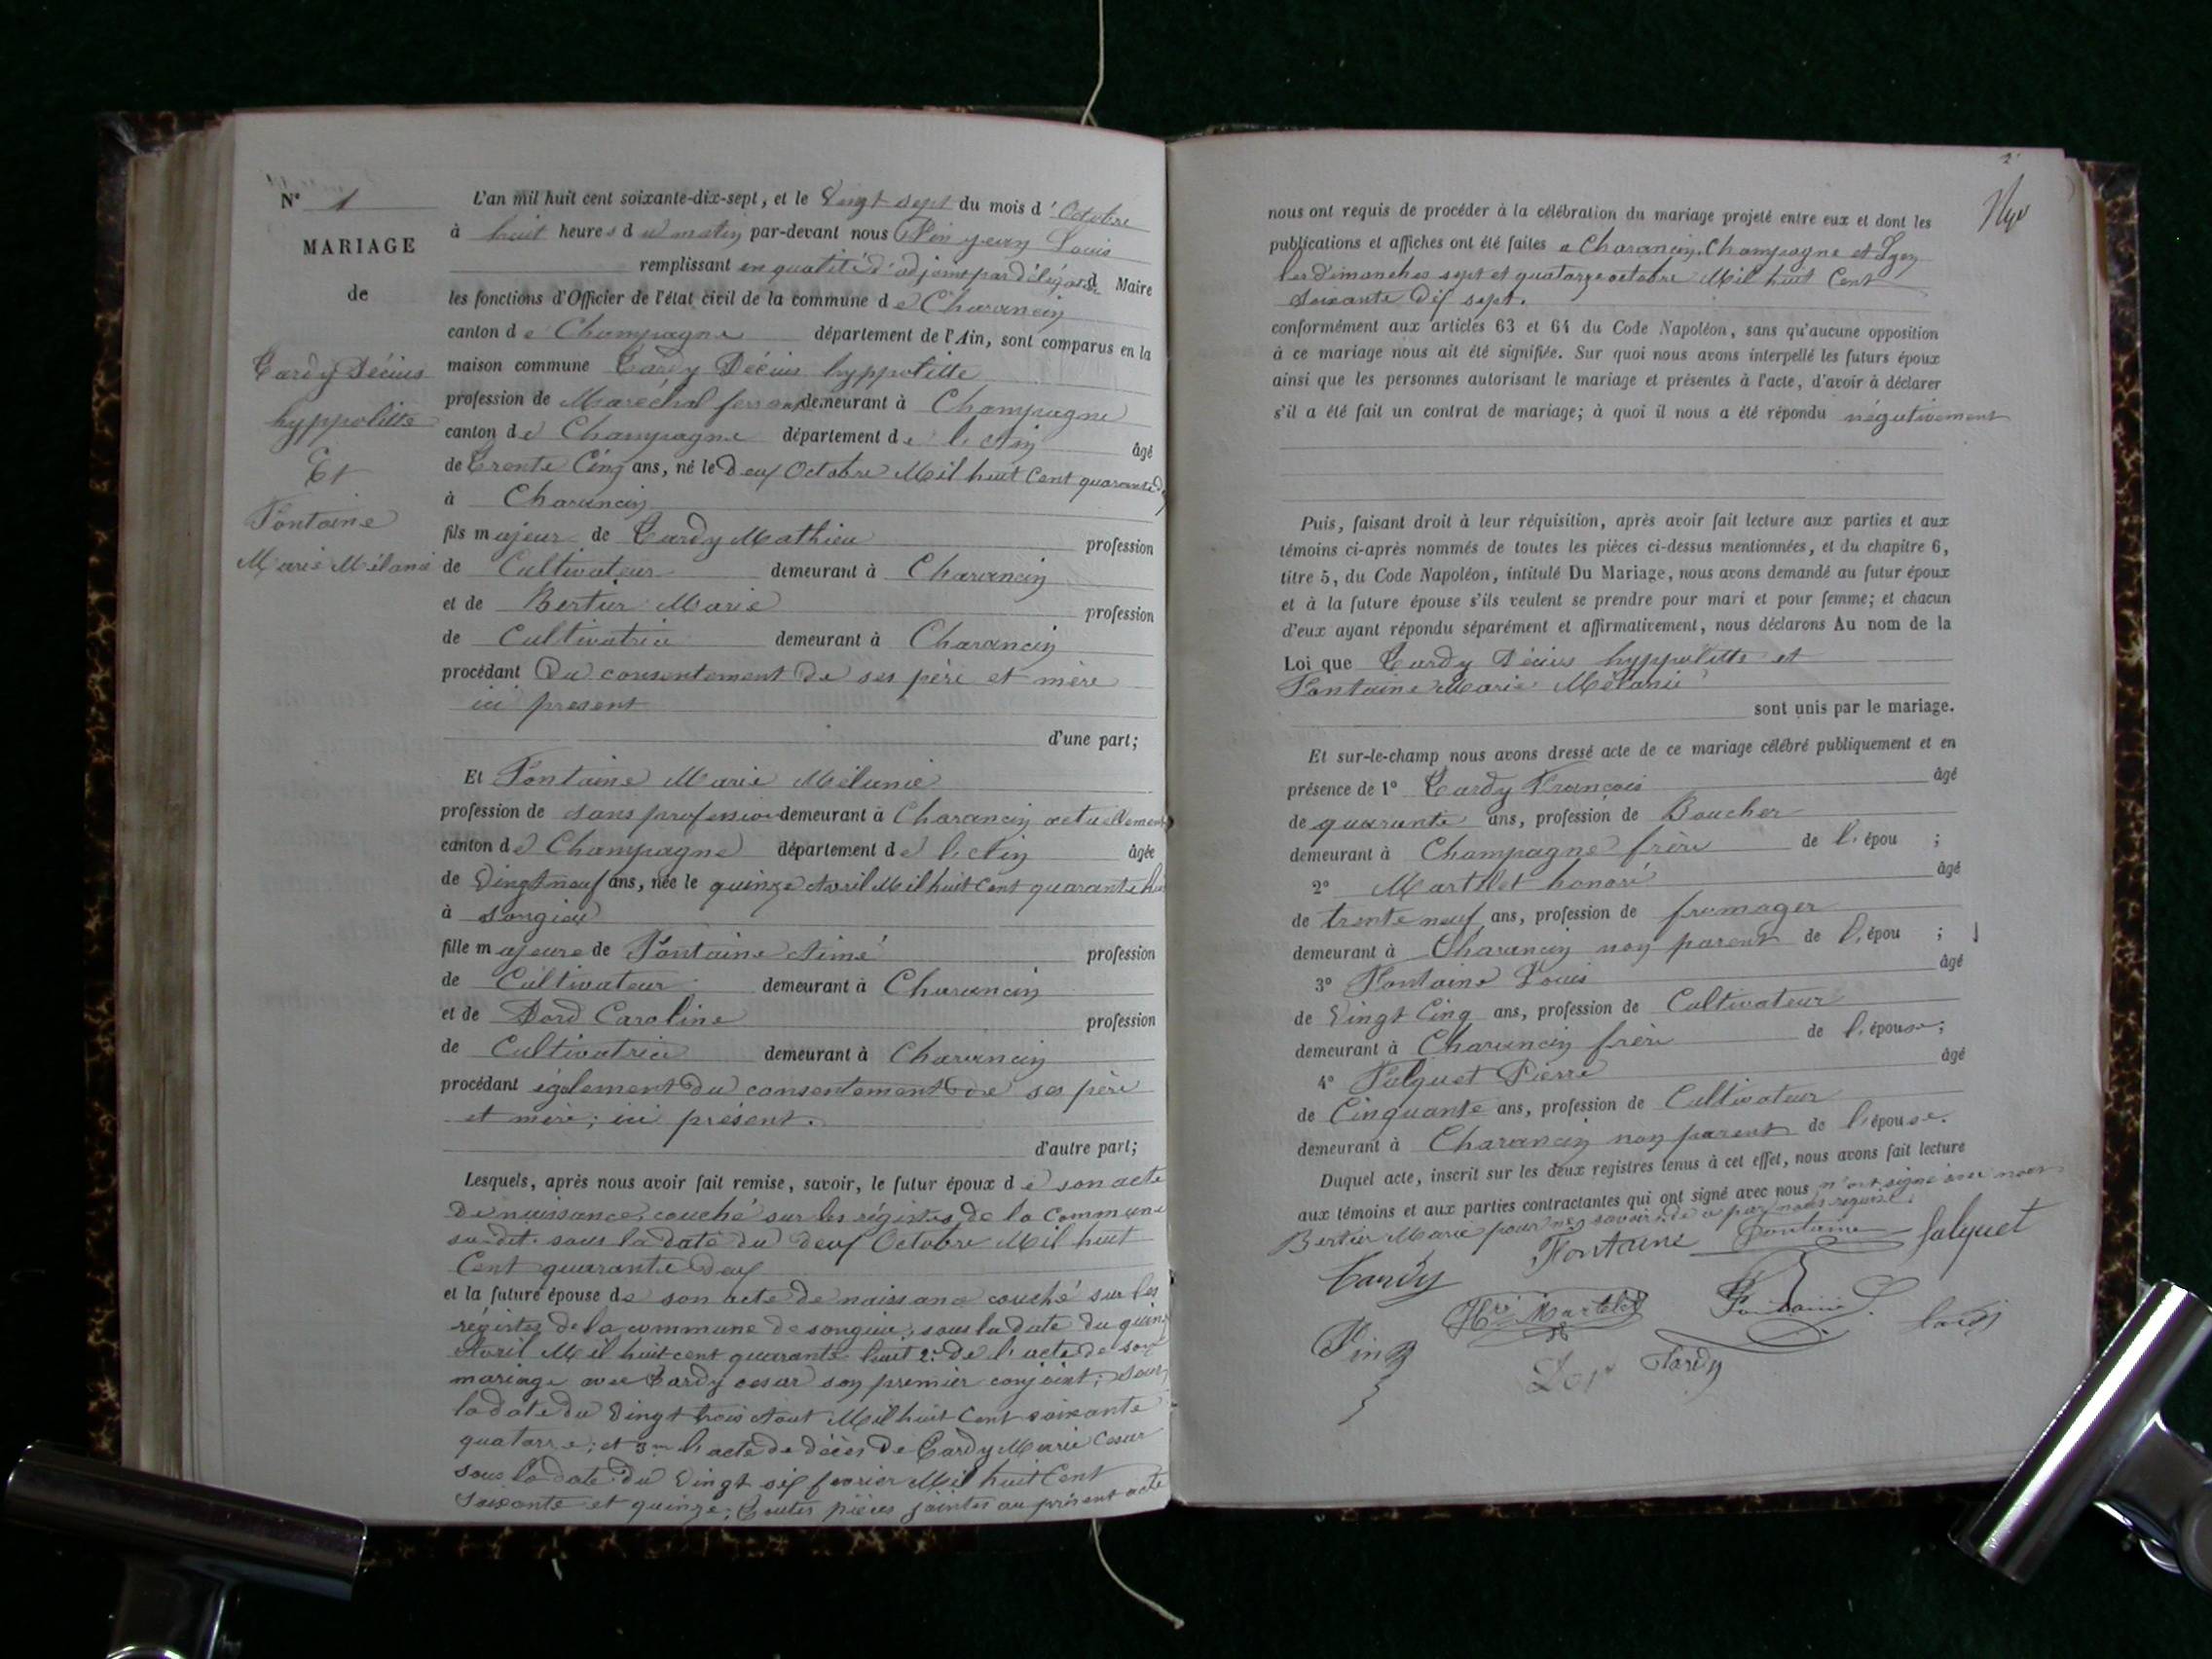 N° 1
MARIAGE
de
Tardy Décius
hyppolitte
Et
Fontaine
Marie Mélanie
L'an mil huit cent soixante-dix-sept, et le Vingt sept du mois d'Octobre
à huit heures du matin par-devant nous Pin jean Louis
remplissant en qualité d'adjoint par délégation d Maire
les fonctions d'Officier de l'état civil de la commune de Charancin
canton de Champagne département de l'Ain, sont comparus en la
maison commune Tardy Décius hyppolitte
profession de Maréchal ferrant demeurant à Champagne
canton de Champagne département de l'Ain âgé
de Trente Cinq ans, né le deux Octobre Mil huit Cent quarante
à Charancin
fils majeur de Tardy Mathieu profession
de Cultivateur demeurant à Charancin
et de Bertier Marie profession
de Cultivatrice demeurant à Charancin
procédant Du consentement de ses père et mère
ici présent
d'une part;
Et Fontaine Marie Mélanie
profession de sans profession demeurant à Charancin actuellement
canton de Champagne département de l'Ain âgée
de Vingt neuf ans, née le quinze Avril Mil huit Cent quarante huit
à Songieu
fille majeure de Fontaine Aimé profession
de Cultivateur demeurant à Charancin
et de Dord Caroline profession
de Cultivatrice demeurant à Charancin
procédant également du consentement de ses père
et mère; ici présent.
d'autre part;
Lesquels, après nous avoir fait remise, savoir, le futur époux de son acte
de naissance, couché sur les régistres de la Commune
su-dit. sous la date du deux Octobre Mil huit
Cent quarante deux
et la future épouse de son acte de naissance couché sur les
régistres de la commune de songieu; sous la date du quinze
Avril Mil huit cent quarante huit 2° de l'acte de son
mariage avec Tardy cesar son premier conjoint; sous
la date du Vingt trois Aout Mil huit Cent soixante
quatorze; et 3me l'acte de décès de Tardy Marie Cesar
sous la date du Vingt six fevrier Mil huit Cent
soixante et quinze; Toutes pièces jointes au présent acte
nous ont requis de procéder à la célébration du mariage projeté entre eux et dont les
publications et affiches ont été faites a Charancin, Champagne et Lyon
les dimanches sept et quatorze octobre Mil huit Cent
Soixante Dix sept.
conformément aux articles 63 et 64 du Code Napoléon, sans qu'aucune opposition
à ce mariage nous ait été signifiée. Sur quoi nous avons interpellé les futurs époux
ainsi que les personnes autorisant le mariage et présentes à l'acte, d'avoir à déclarer
s'il a été fait un contrat de mariage; à quoi il nous a été répondu négativement
Puis, faisant droit à leur réquisition, après avoir fait lecture aux parties et aux
témoins ci-après nommés de toutes les pièces ci-dessus mentionnées, et du chapitre 6,
titre 5, du Code Napoléon, intitulé Du Mariage, nous avons demandé au futur époux
et à la future épouse s'ils veulent se prendre pour mari et pour femme; et chacun
d'eux ayant répondu séparément et affirmativement, nous déclarons Au nom de la
Loi que Tardy Décius hyppolitte et
Fontaine Marie Mélanie
sont unis par le mariage.
Et sur-le-champ nous avons dressé acte de ce mariage célébré publiquement et en
présence de 1° Tardy François âgé
de quarante ans, profession de Boucher
demeurant à Champagne frère de l'épou ;
2° Martelet honoré âgé
de trente neuf ans, profession de fromager
demeurant à Charancin non parent de l'épou ;
3° Fontaine Louis âgé
de Vingt Cinq ans, profession de Cultivateur
demeurant à Charancin frère de l'épouse;
4° Falquet Pierre âgé
de Cinquante ans, profession de Cultivateur
demeurant à Charancin non parent de l'épouse.
Duquel acte, inscrit sur les deux registres tenus à cet effet, nous avons fait lecture
aux témoins et aux parties contractantes qui ont signé avec nous n'ont signé avec nous
Bertier Marie pour ne savoir de ce par nous requise.
Tardy Fontaine Fontaine falquet
Pin Hré Martelet Fontaine L. Tardy
Tardy